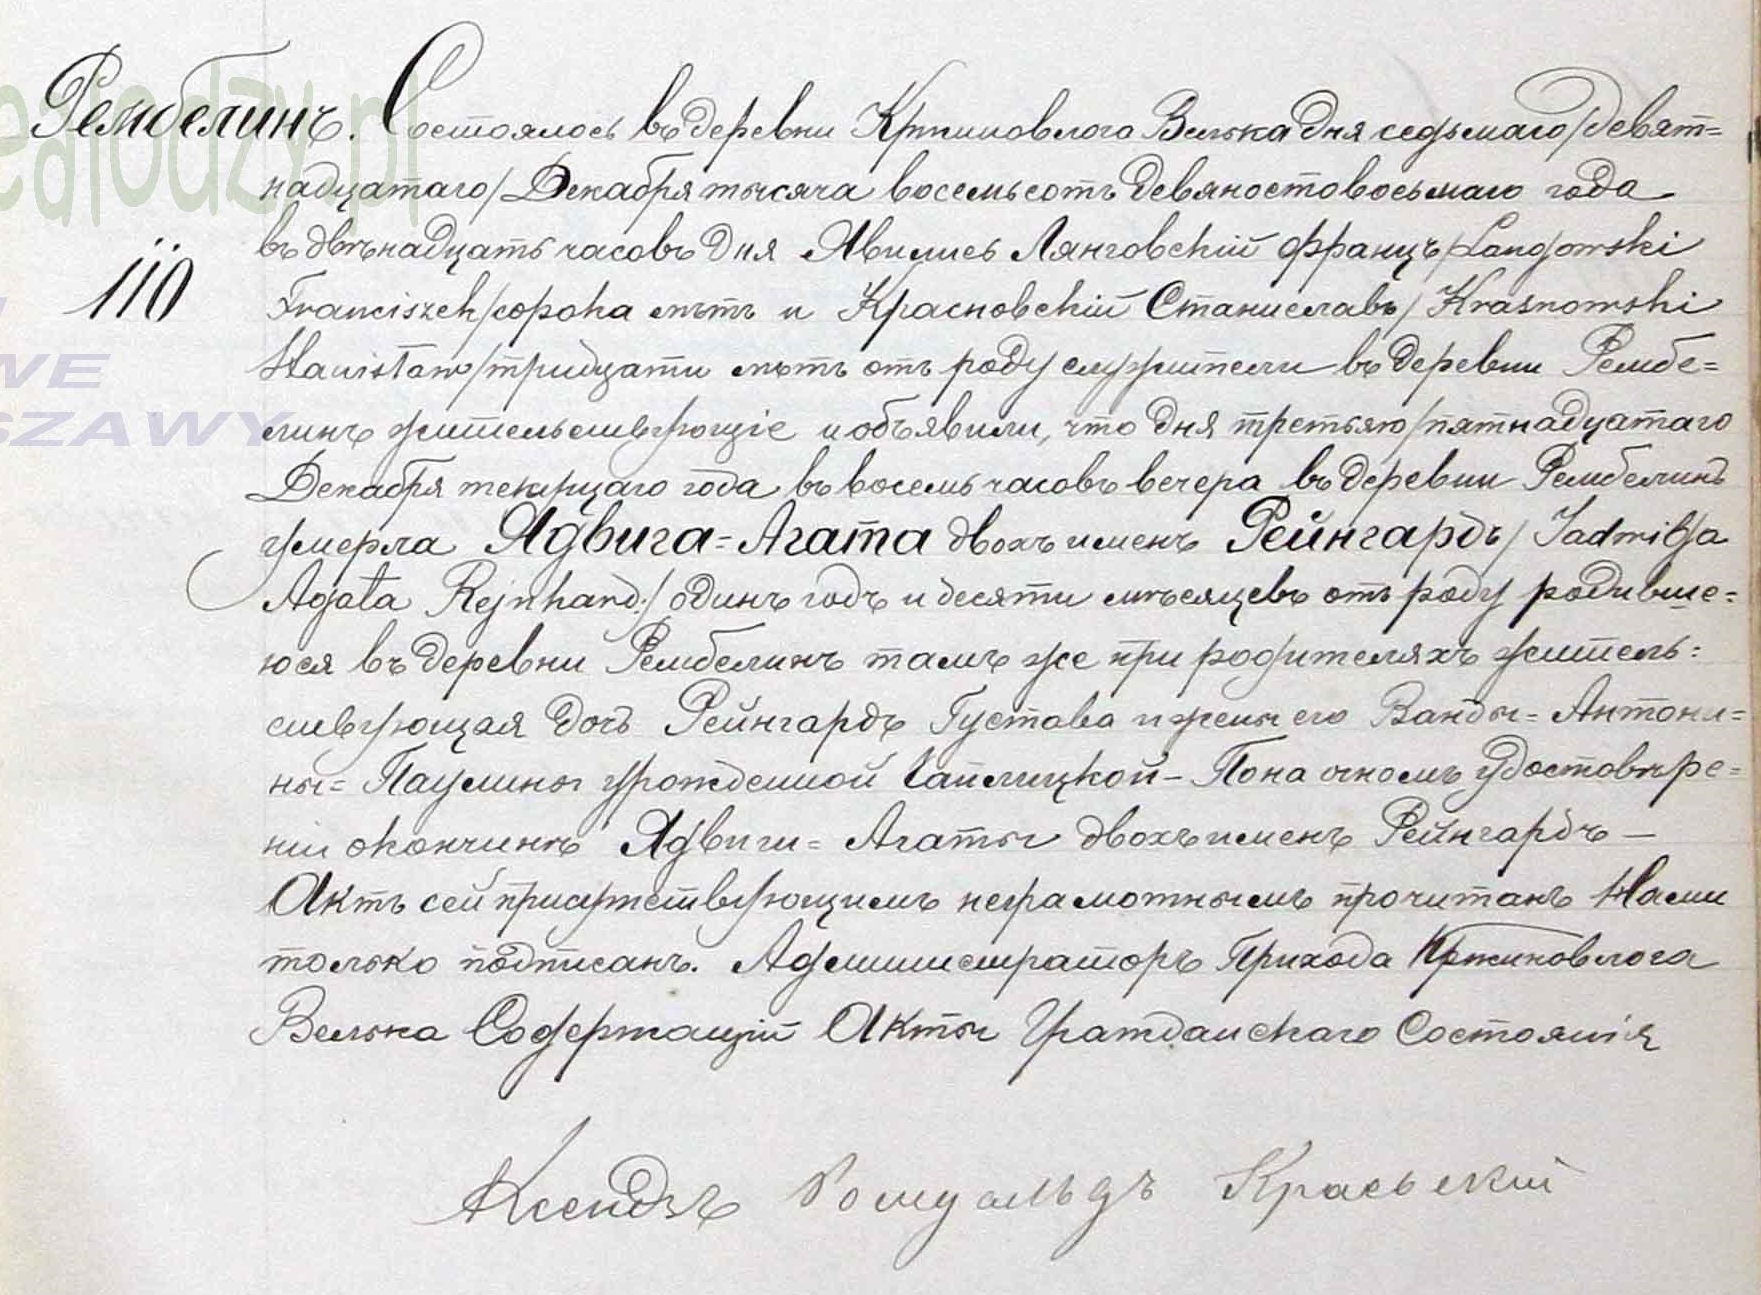 Рембелинъ. Состоялось въ деревни Кржиновлога Велька дня седьмаго/девят=
надцатаго/Декабря тысяча восемьсотъ девяностовосьмаго года
въ двѣнадцать часовъ дня Явились Лянговскій Францъ/Langowski
110
Franciszek/сорока лѣтъ и Красновскій Станиславъ/Krasnowski
Stanisław/тридцати лѣтъ отъ роду служители въ деревни Рембе=
линъ жительствующіе и объявили, что дня третьяго/пятнадцатаго
Декабря текущаго года въ восемь часовъ вечера въ деревни Рембелинъ
умерла Ядвига=Агата двохъ именъ Рейнгардъ/Jadwiga
Agata Rejnhard:/одинъ годъ и десяти мѣсяцевъ отъ роду родивше=
юся въ деревни Рембелинъ тамъ же при родителяхъ житель=
ствующая дочь Рейнгардъ Густава и жены его Ванды=Антони=
ны=Паулины урожденной – По на очномъ удостовѣре=
ніи окончинѣ Ядвиги=Агаты двохъ именъ Рейнгардъ –
Актъ сей присутствующимъ неграмотнымъ прочитанъ Нами
только подписанъ. Администраторъ Прихода Кржиновлога
Велька Содержащій Акты Гражданскаго Состоянія
Ксендзъ Ромуальдъ